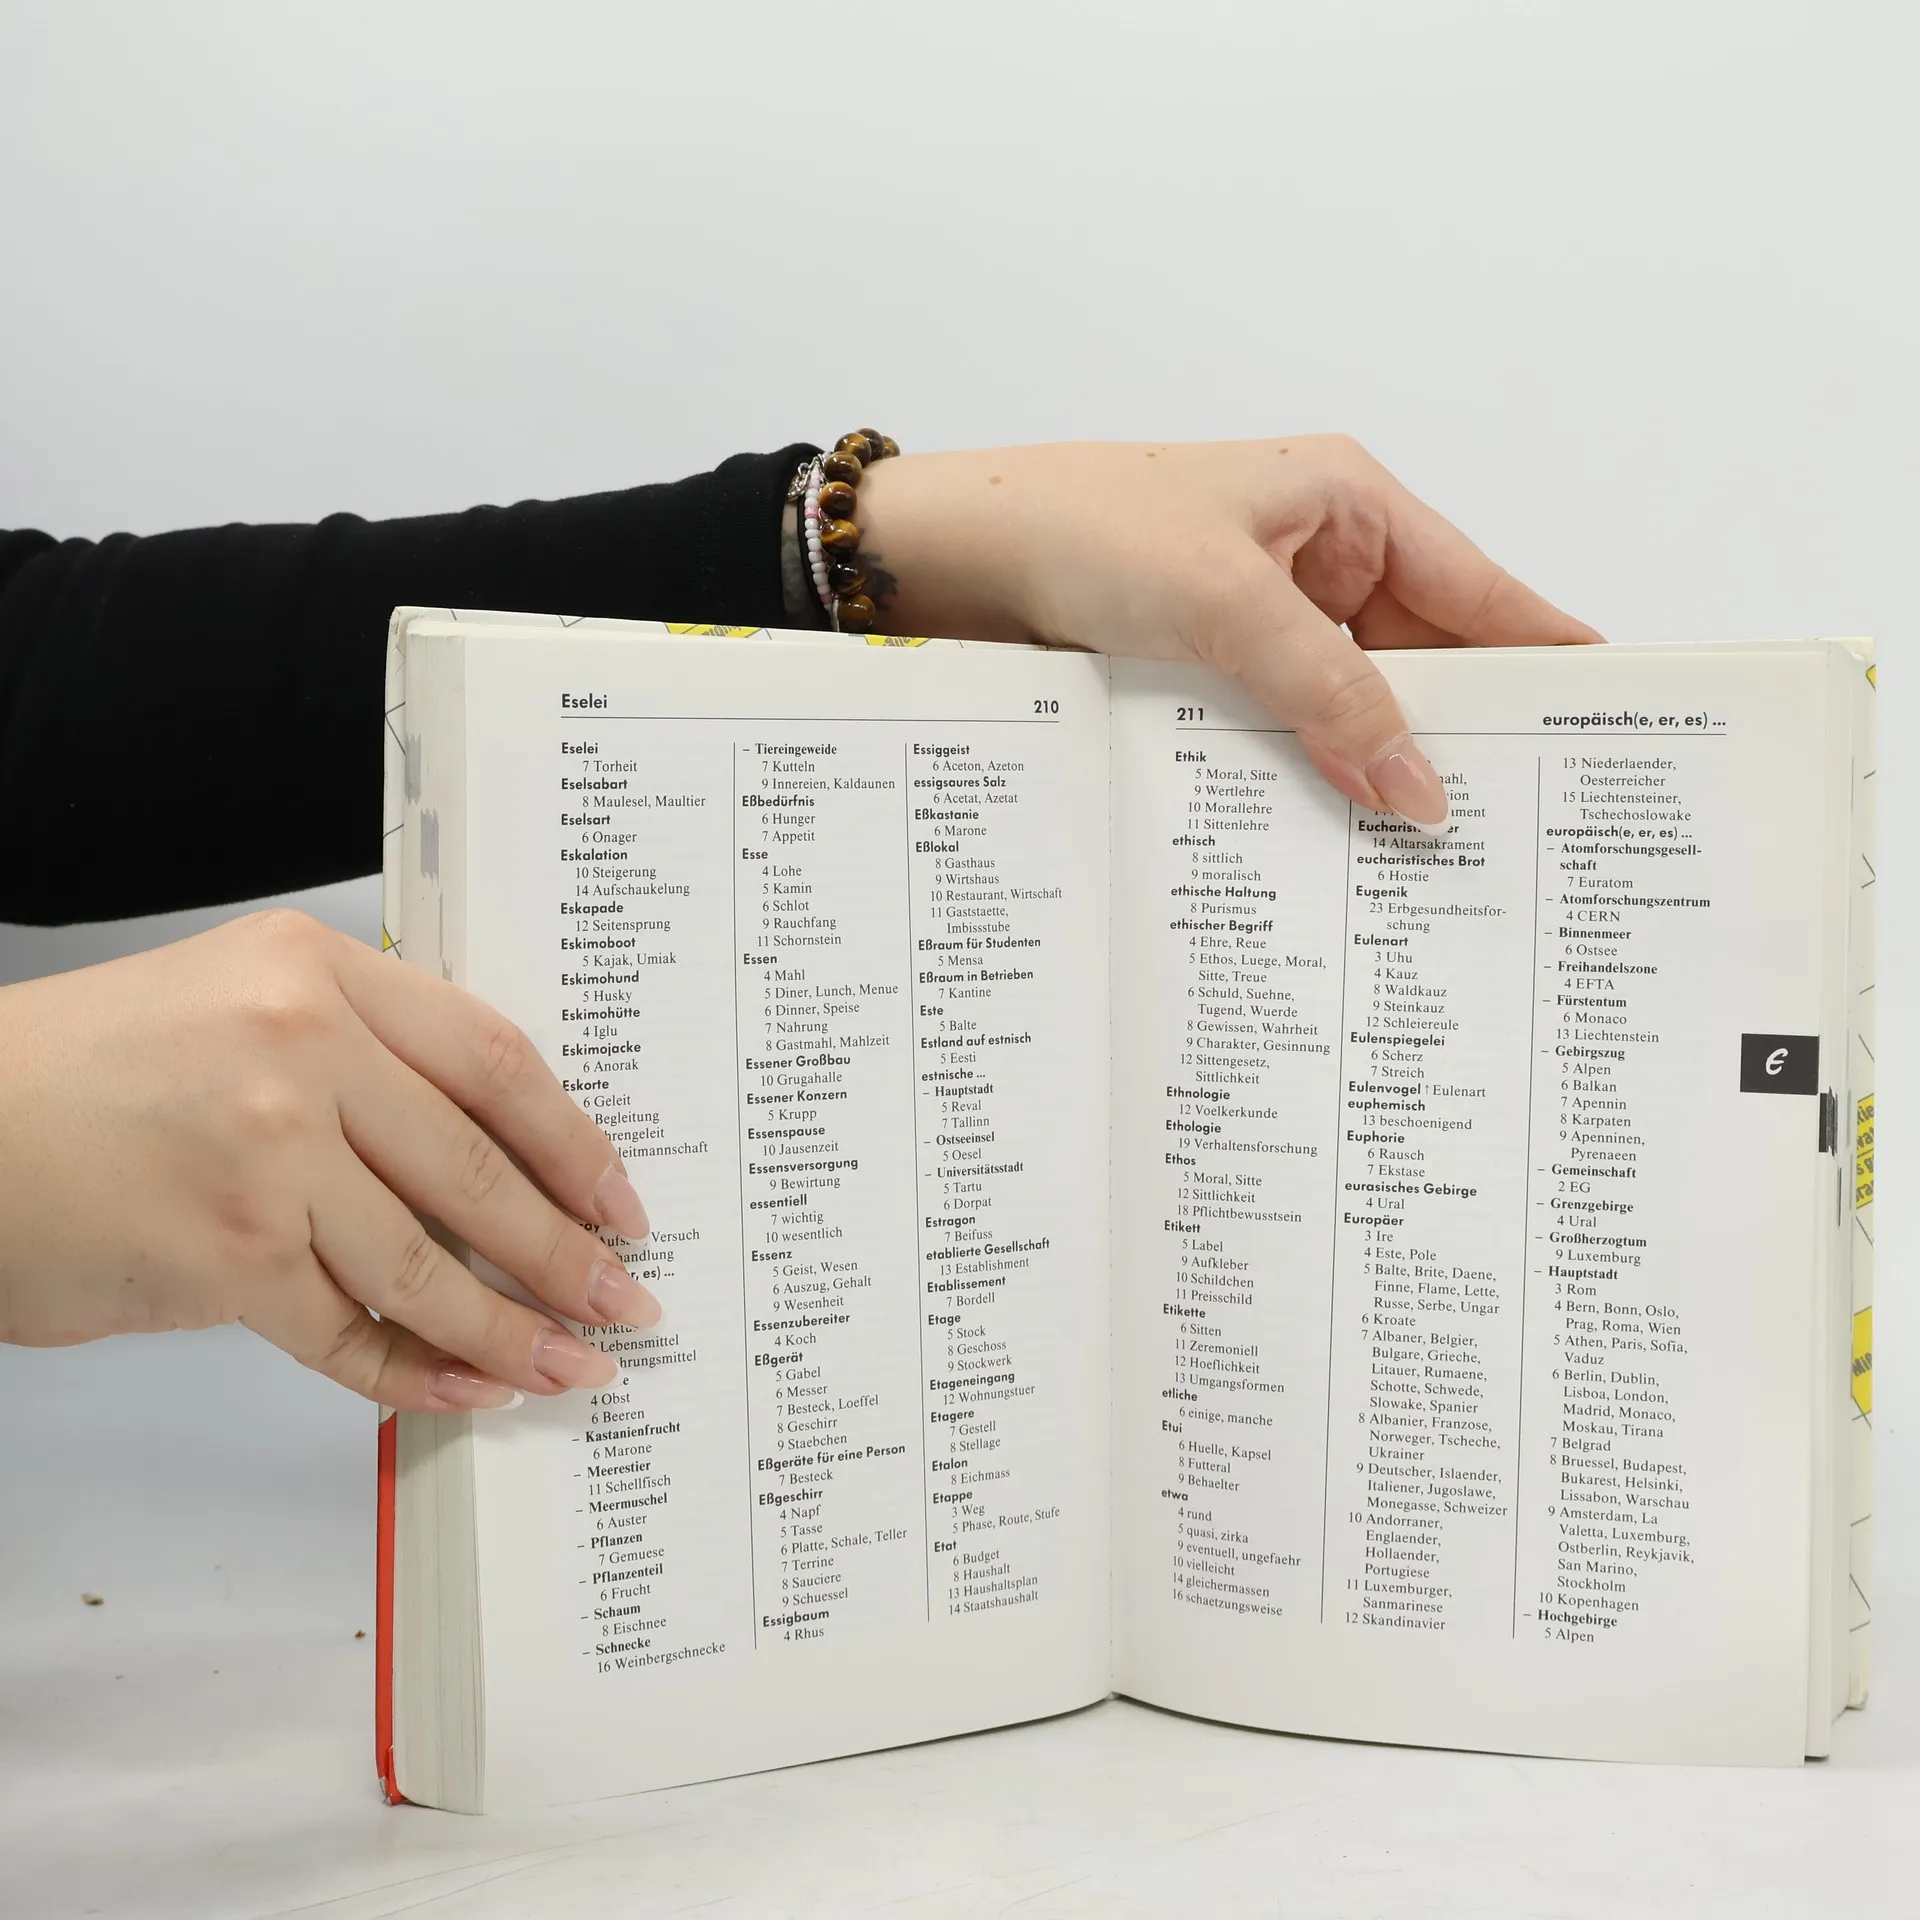 Eselei
210
Eselei
7 Torheit
Eselsabart
8 Maulesel, Maultier
Eselsart
6 Onager
Eskalation
10 Steigerung
14 Aufschaukelung
Eskapade
12 Seitensprung
Eskimoboot
5 Kajak, Umiak
Eskimohund
5 Husky
Eskimohütte
4 Iglu
Eskimojacke
6 Anorak
Eskorte
6 Geleit
Begleitung
Versuch
10
Lebensmittel
4 Obst
6 Beeren
– Kastanienfrucht
6 Marone
– Meerestier
11 Schellfisch
– Meermuschel
6 Auster
– Pflanzen
7 Gemuese
– Pflanzenteil
6 Frucht
– Schaum
8 Eischnee
– Schnecke
16 Weinbergschnecke
– Tiereingeweide
7 Kutteln
9 Innereien, Kaldaunen
Eßbedürfnis
6 Hunger
7 Appetit
Esse
4 Lohe
5 Kamin
6 Schlot
9 Rauchfang
11 Schornstein
Essen
4 Mahl
5 Diner, Lunch, Menue
6 Dinner, Speise
7 Nahrung
8 Gastmahl, Mahlzeit
Essener Großbau
10 Grugahalle
Essener Konzern
5 Krupp
Essenspause
10 Jausenzeit
Essensversorgung
9 Bewirtung
essentiell
7 wichtig
10 wesentlich
Essenz
5 Geist, Wesen
6 Auszug, Gehalt
9 Wesenheit
Essenzubereiter
4 Koch
Eßgerät
5 Gabel
6 Messer
7 Besteck, Loeffel
8 Geschirr
9 Staebchen
Eßgeräte für eine Person
7 Besteck
Eßgeschirr
4 Napf
5 Tasse
6 Platte, Schale, Teller
7 Terrine
8 Sauciere
9 Schuessel
Essigbaum
4 Rhus
Essiggeist
6 Aceton, Azeton
essigsaures Salz
6 Acetat, Azetat
Eßkastanie
6 Marone
Eßlokal
8 Gasthaus
9 Wirtshaus
10 Restaurant, Wirtschaft
11 Gaststaette,
Imbissstube
Eßraum für Studenten
5 Mensa
Eßraum in Betrieben
7 Kantine
Este
5 Balte
Estland auf estnisch
5 Eesti
estnische ...
– Hauptstadt
5 Reval
7 Tallinn
– Ostseeinsel
5 Oesel
– Universitätsstadt
5 Tartu
6 Dorpat
Estragon
7 Beifuss
etablierte Gesellschaft
13 Establishment
Etablissement
7 Bordell
Etage
5 Stock
8 Geschoss
9 Stockwerk
Etageneingang
12 Wohnungstuer
Etagere
7 Gestell
8 Stellage
Etalon
8 Eichmass
Etappe
3 Weg
5 Phase, Route, Stufe
Etat
6 Budget
8 Haushalt
13 Haushaltsplan
14 Staatshaushalt
211
europäisch(e, er, es) ...
Ethik
5 Moral, Sitte
9 Wertlehre
10 Morallehre
11 Sittenlehre
ethisch
8 sittlich
9 moralisch
ethische Haltung
8 Purismus
ethischer Begriff
4 Ehre, Reue
5 Ethos, Luege, Moral,
Sitte, Treue
6 Schuld, Suehne,
Tugend, Wuerde
8 Gewissen, Wahrheit
9 Charakter, Gesinnung
12 Sittengesetz,
Sittlichkeit
Ethnologie
12 Voelkerkunde
Ethologie
19 Verhaltensforschung
Ethos
5 Moral, Sitte
12 Sittlichkeit
18 Pflichtbewusstsein
Etikett
5 Label
9 Aufkleber
10 Schildchen
11 Preisschild
Etikette
6 Sitten
11 Zeremoniell
12 Hoeflichkeit
13 Umgangsformen
etliche
6 einige, manche
Etui
6 Huelle, Kapsel
8 Futteral
9 Behaelter
etwa
4 rund
5 quasi, zirka
9 eventuell, ungefaehr
10 vielleicht
14 gleichermassen
16 schaetzungsweise
14 Altarsakrament
eucharistisches Brot
6 Hostie
Eugenik
23 Erbgesundheitsfor-
schung
Eulenart
3 Uhu
4 Kauz
8 Waldkauz
9 Steinkauz
12 Schleiereule
Eulenspiegelei
6 Scherz
7 Streich
Eulenvogel ↑ Eulenart
euphemisch
13 beschoenigend
Euphorie
6 Rausch
7 Ekstase
eurasisches Gebirge
4 Ural
Europäer
3 Ire
4 Este, Pole
5 Balte, Brite, Daene,
Finne, Flame, Lette,
Russe, Serbe, Ungar
6 Kroate
7 Albaner, Belgier,
Bulgare, Grieche,
Litauer, Rumaene,
Schotte, Schwede,
Slowake, Spanier
8 Albanier, Franzose,
Norweger, Tscheche,
Ukrainer
9 Deutscher, Islaender,
Italiener, Jugoslawe,
Monegasse, Schweizer
10 Andorraner,
Englaender,
Hollaender,
Portugiese
11 Luxemburger,
Sanmarinese
12 Skandinavier
13 Niederlaender,
Oesterreicher
15 Liechtensteiner,
Tschechoslowake
europäisch(e, er, es) ...
– Atomforschungsgesell-
schaft
7 Euratom
– Atomforschungszentrum
4 CERN
– Binnenmeer
6 Ostsee
– Freihandelszone
4 EFTA
– Fürstentum
6 Monaco
13 Liechtenstein
– Gebirgszug
5 Alpen
6 Balkan
7 Apennin
8 Karpaten
9 Apenninen,
Pyrenaeen
– Gemeinschaft
2 EG
– Grenzgebirge
4 Ural
– Großherzogtum
9 Luxemburg
– Hauptstadt
3 Rom
4 Bern, Bonn, Oslo,
Prag, Roma, Wien
5 Athen, Paris, Sofia,
Vaduz
6 Berlin, Dublin,
Lisboa, London,
Madrid, Monaco,
Moskau, Tirana
7 Belgrad
8 Bruessel, Budapest,
Bukarest, Helsinki,
Lissabon, Warschau
9 Amsterdam, La
Valetta, Luxemburg,
Ostberlin, Reykjavik,
San Marino,
Stockholm
10 Kopenhagen
– Hochgebirge
5 Alpen
e